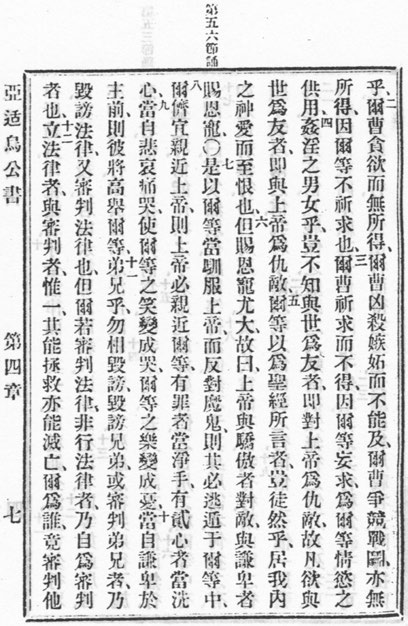 第五六節誦
乎二爾曹貪欲而無所得爾曹凶殺嫉妬而不能及爾曹爭競戰鬬亦無
所得因爾等不祈求也三爾曹祈求而不得因爾等妄求爲爾等情慾之
供用四姦淫之男女乎豈不知與世爲友者即對上帝爲仇敵故凡欲與
世爲友者即與上帝爲仇敵五爾等以爲聖經所言者豈徒然乎居我內
之神愛而至恨也六但賜恩寵尤大故曰上帝與驕傲者對敵與謙卑者
賜恩寵〇七是以爾等當馴服上帝而反對魔鬼則其必逃遁于爾等中
八爾儕宜親近上帝則上帝必親近爾等有罪者當淨手有貳心者當洗
心九當自悲哀痛哭使爾等之笑變成哭爾等之樂變成憂十當自謙卑於
主前則彼將高舉爾等十一弟兄乎勿相毀謗毀謗兄弟或審判弟兄者乃
毀謗法律又審判法律也但爾若審判法律非行法律者乃自爲審判
者也十二立法律者與審判者惟一其能拯救亦能滅亡爾爲誰竟審判他
亞适烏公書
第四章
七